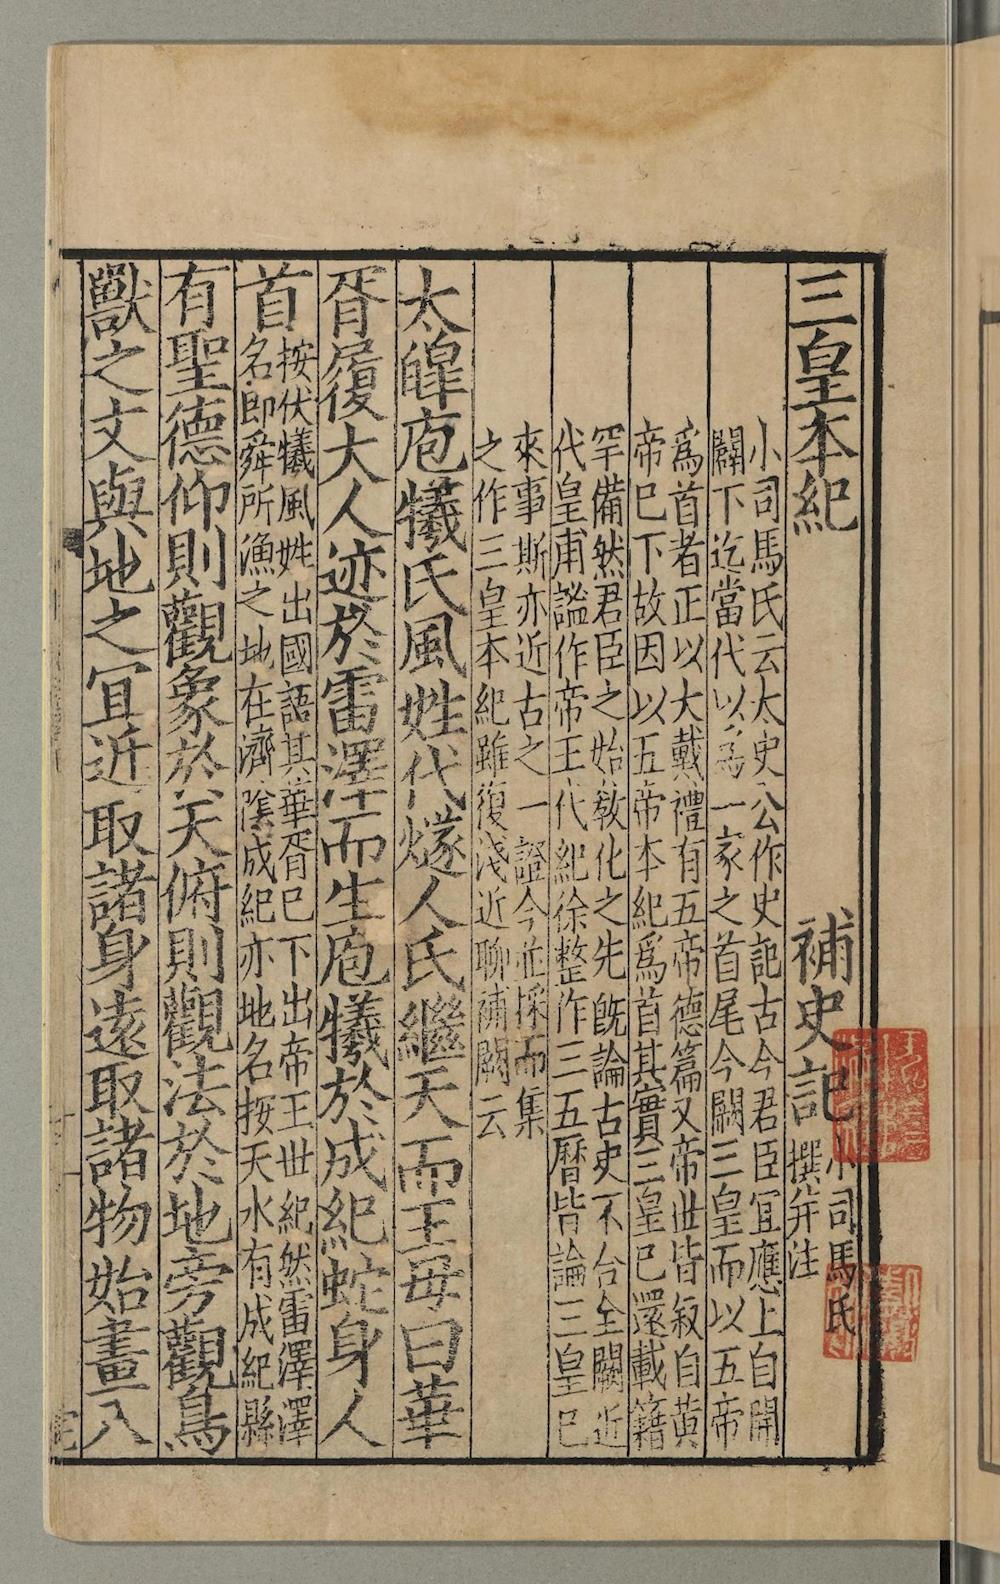 三皇本紀　補史記　小司馬氏
撰并注
小司馬氏云太史公作史記古今君臣宜應上自開
闢下迄當代以爲一家之首尾今闕三皇而以五帝
爲首者正以大戴禮有五帝德篇又帝世皆叙自黄
帝已下故因以五帝本紀爲首其實三皇已還載籍
罕備然君臣之始敎化之先旣論古史不合全闕近
代皇甫謐作帝王代紀徐整作三五曆皆論三皇已
來事斯亦近古之一證今並採而集
之作三皇本紀雖復淺近聊補闕云
太皥庖犧氏風姓代燧人氏繼天而王母曰華
胥履大人迹於雷澤而生庖犧於成紀蛇身人
首
按伏犧風姓出國語其華胥巳下出帝王世紀然雷澤澤
名即舜所漁之地在濟隂成紀亦地名按天水有成紀縣
有聖德仰則觀象於天俯則觀法於地旁觀鳥
獸之文與地之冝近取諸身遠取諸物始畫八